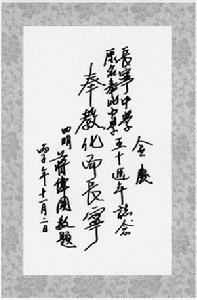 長寧中學
原名中學
五十週年誌念
金慶
奉教化而長寧
四明 蔣緯國敬題
丙子年十一月二日